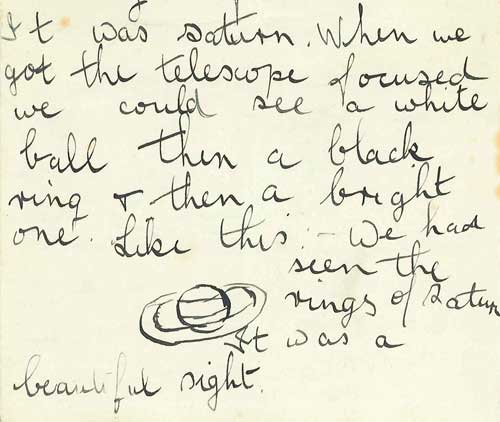 It was saturn. When we
got the telescope focused
we could see a white
ball then a black
ring & then a bright
one. Like this:- We had
seen the
rings of Saturn
It was a
beautiful sight.